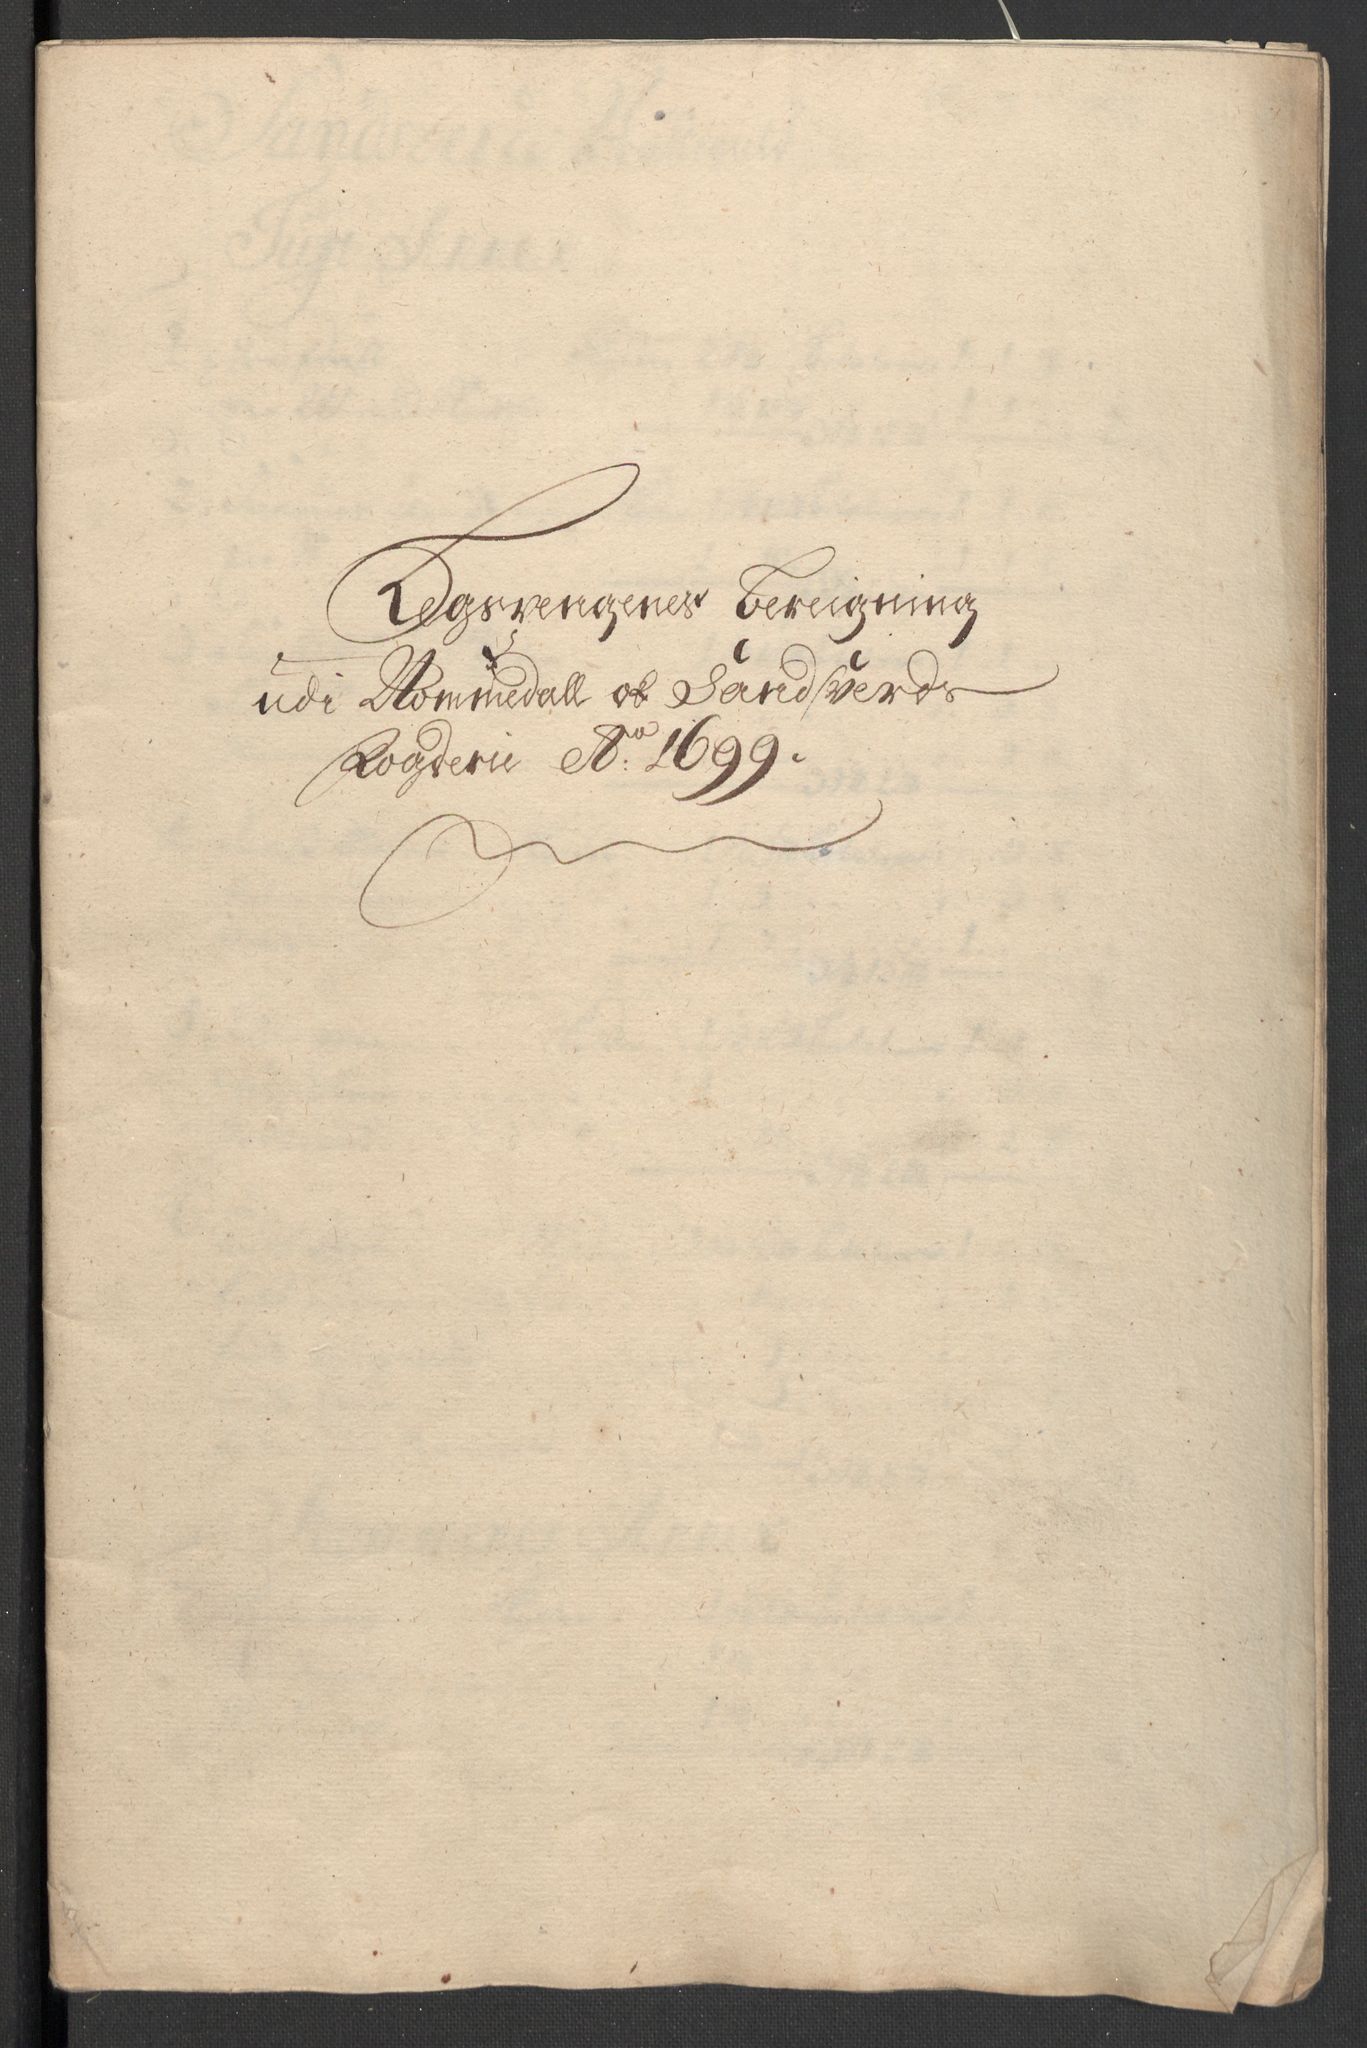 Dagsvengenes Bereigning
udi Nommedall og Sandsverds
Fogderie Ao: 1699.